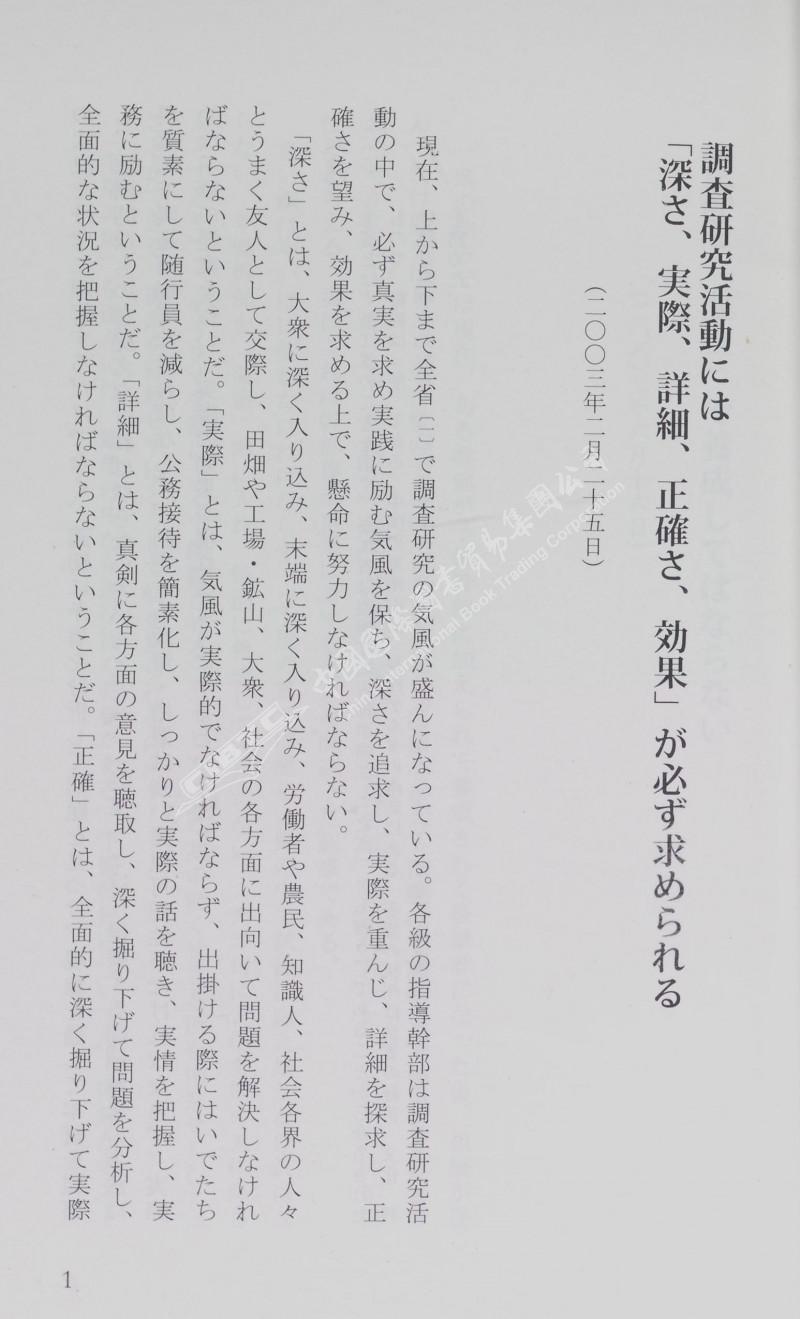 調査研究活動には
「深さ、実際、詳細、正確さ、効果」が必ず求められる
（二〇〇三年二月二十五日）
現在、上から下まで全省〔一〕で調査研究の気風が盛んになっている。各級の指導幹部は調査研究活
動の中で、必ず真実を求め実践に励む気風を保ち、深さを追求し、実際を重んじ、詳細を探求し、正
確さを望み、効果を求める上で、懸命に努力しなければならない。
「深さ」とは、大衆に深く入り込み、末端に深く入り込み、労働者や農民、知識人、社会各界の人々
とうまく友人として交際し、田畑や工場・鉱山、大衆、社会の各方面に出向いて問題を解決しなけれ
ばならないということだ。「実際」とは、気風が実際的でなければならず、出掛ける際にはいでたち
を質素にして随行員を減らし、公務接待を簡素化し、しっかりと実際の話を聴き、実情を把握し、実
務に励むということだ。「詳細」とは、真剣に各方面の意見を聴取し、深く掘り下げて問題を分析し、
全面的な状況を把握しなければならないということだ。「正確」とは、全面的に深く掘り下げて実際
1
中国国際图書貿易集團公司
China International Book Trading Corporation